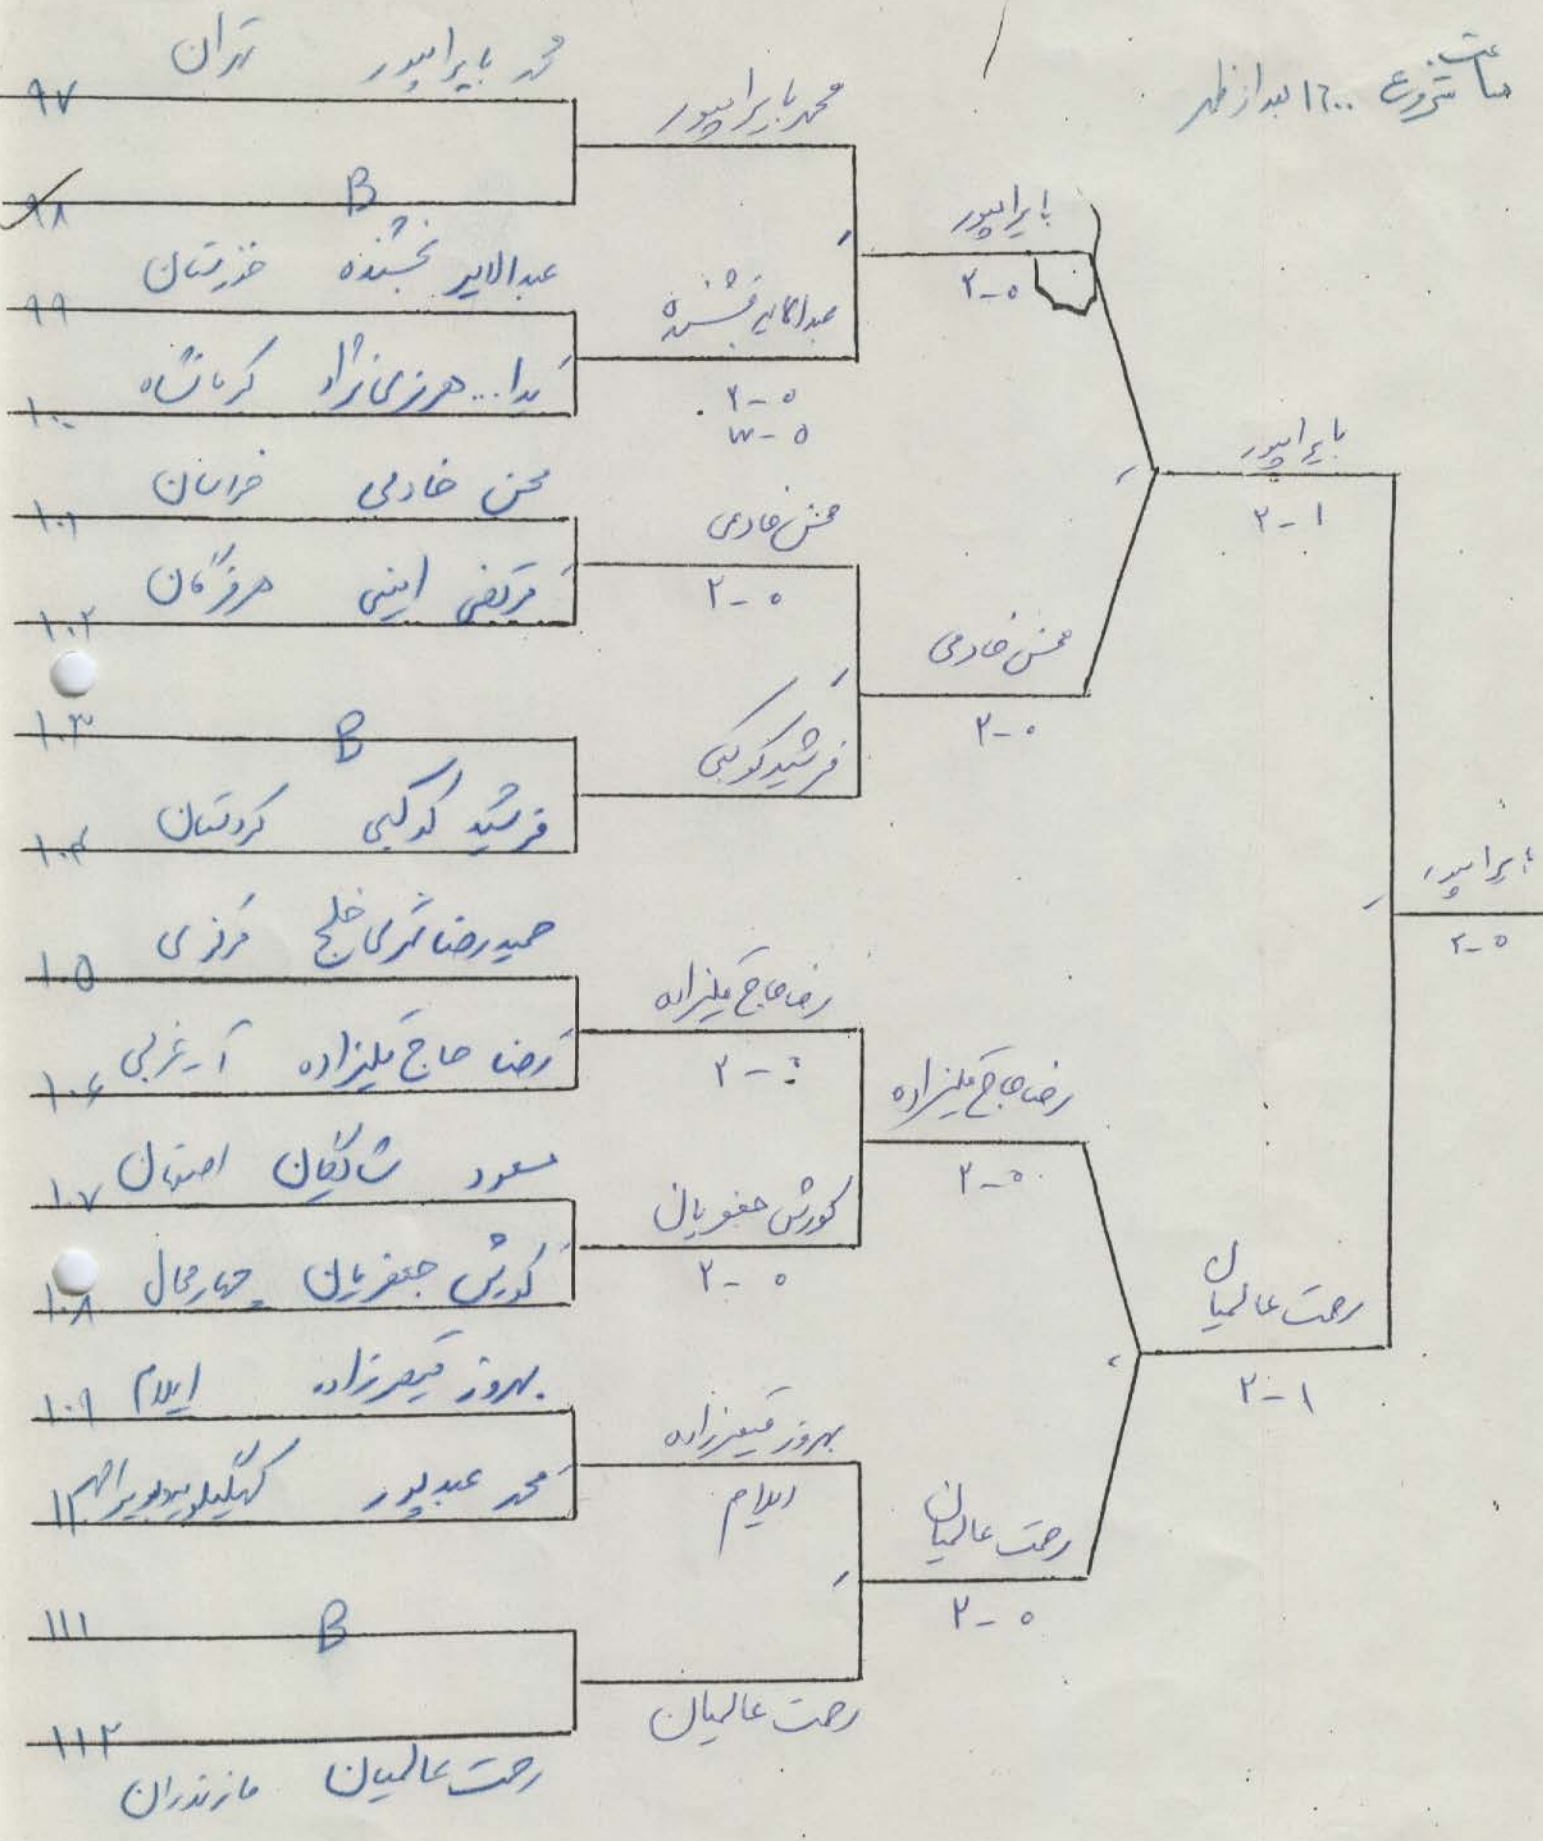 ساعت شروع ۱۶:۰۰ بعداز ظهر
محمد بایرامپور تهران
۹۷
B
۹۸
عبدالامیر بخشنده خوزستان
۹۹
یدا... هرزی نژاد کرمانشاه
۱۰۰
محسن خادمی خراسان
۱۰۱
مرتضی امینی هرمزگان
۱۰۲
B
۱۰۳
فرشید کوکبی کردستان
۱۰۴
حمیدرضا خلج مرکزی
۱۰۵
رضا حاج ملیزاده آ-غربی
۱۰۶
مسعود شادکیان اصفهان
۱۰۷
کورش جعفریان چهارمحال
۱۰۸
بهروز قیصرزاده ایلام
۱۰۹
محمد عبدپور کهگیلویه بویراحمد
۱۱۰
B
۱۱۱
۱۱۲
رحمت عالمیان مازندران
محمد بایرامپور
عبدالامیر بخشنده
۲-۰
محسن خادمی
۲-۰
فرشید کوکبی
رضا حاج ملیزاده
۲-۰
کورش جعفریان
۲-۰
بهروز قیصرزاده
ایلام
رحمت عالمیان
بایرامپور
۲-۰
محسن خادمی
۲-۰
رضا حاج ملیزاده
۲-۰
رحمت عالمیان
۲-۰
بایرامپور
۲-۱
رحمت عالمیان
۲-۱
بایرامپور
۲-۰